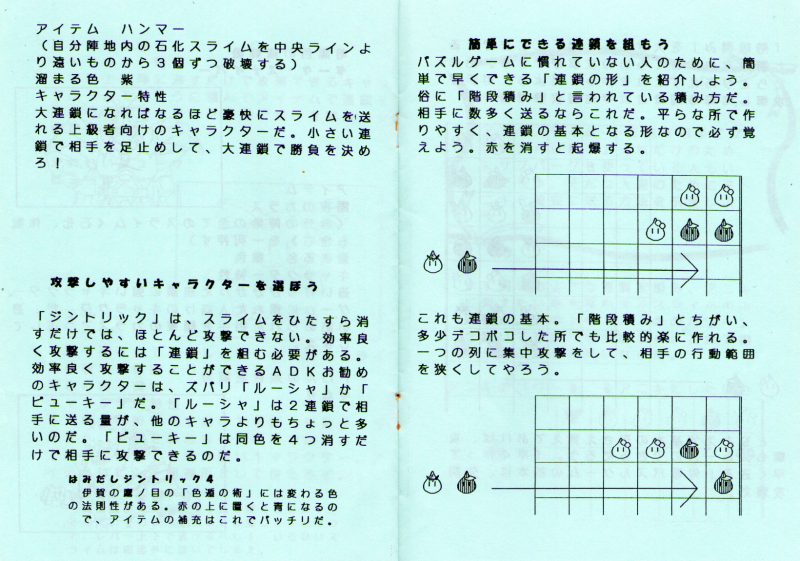 アイテム　ハンマー
（自分陣地内の石化スライムを中央ラインよ
り遠いものから３個ずつ破壊する）
溜まる色　紫
キャラクター特性
大連鎖になればなるほど豪快にスライムを送
れる上級者向けのキャラクターだ。小さい連
鎖で相手を足止めして、大連鎖で勝負を決め
ろ！
攻撃しやすいキャラクターを選ぼう
「ジントリック」は、スライムをひたすら消
すだけでは、ほとんど攻撃できない。効率良
く攻撃するには「連鎖」を組む必要がある。
効率良く攻撃することができるＡＤＫお勧め
のキャラクターは、ズバリ「ルーシャ」か「
ピューキー」だ。「ルーシャ」は２連鎖で相
手に送る量が、他のキャラよりもちょっと多
いのだ。「ピューキー」は同色を４つ消すだ
けで相手に攻撃できるのだ。
はみだしジントリック４
伊賀の鷹ノ目の「色遁の術」には変わる色
の法則性がある。赤の上に置くと青になるの
で、アイテムの補充はこれでバッチリだ。
簡単にできる連鎖を組もう
パズルゲームに慣れていない人のために、簡
単で早くできる「連鎖の形」を紹介しよう。
俗に「階段積み」と言われている積み方だ。
相手に数多く送るならこれだ。平らな所で作
りやすく、連鎖の基本となる形なので必ず覚
えよう。赤を消すと起爆する。
これも連鎖の基本。「階段積み」とちがい、
多少デコボコした所でも比較的楽に作れる。
一つの列に集中攻撃をして、相手の行動範囲
を狭くしてやろう。